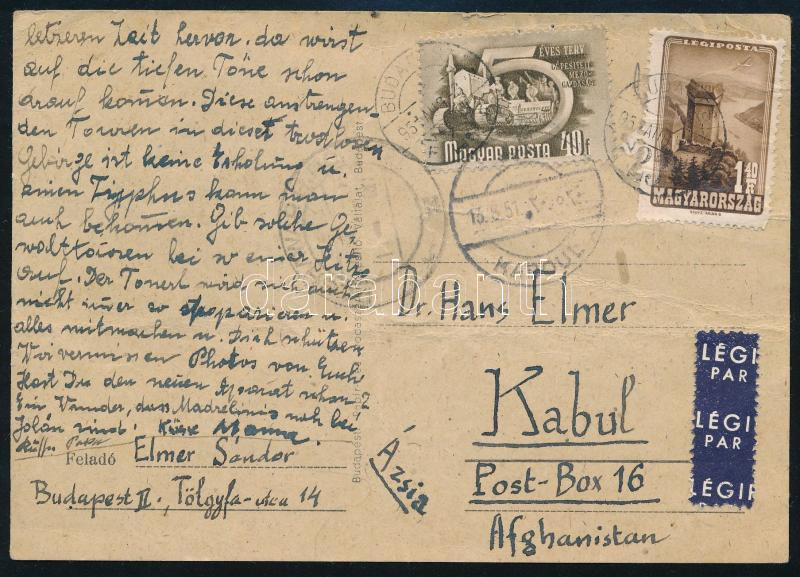 letzeren Zeit hervor, da wirst
auf die tiefen Töne schon
drauf kommen. Diese anstrengen-
den Touren in dieser trostlosen
Gebirge ist keine Erholung u.
einen Typphus kann man
auch bekommen. Gib solche Ge-
walttouren bei so einer Hitze
auf. Der Tonerl wird sich auch
nicht immer so u.
alles mitmachen u. Dich schützen
Wir vermissen Photos von Euch
Hast Du den neuen Aparat schon?
Ein Wunder, dass noch bei
Jolán sind. Küsse Mama
Feladó Elmer Sándor
Budapest II. Tölgyfa-utca 14
5 ÉVES TERV
GÉPESÍTETT
MEZŐ-
GAZDASÁG
MAGYAR POSTA 40f
LÉGIPOSTA
1 40 Ft
MAGYARORSZÁG
BUDA
13.8.51
KABOUL
darabanth
Dr. Hans Elmer
Kabul
Post-Box 16
Afghanistan
Ázsia
LÉGI
PAR
LÉGI
PAR
LÉGI